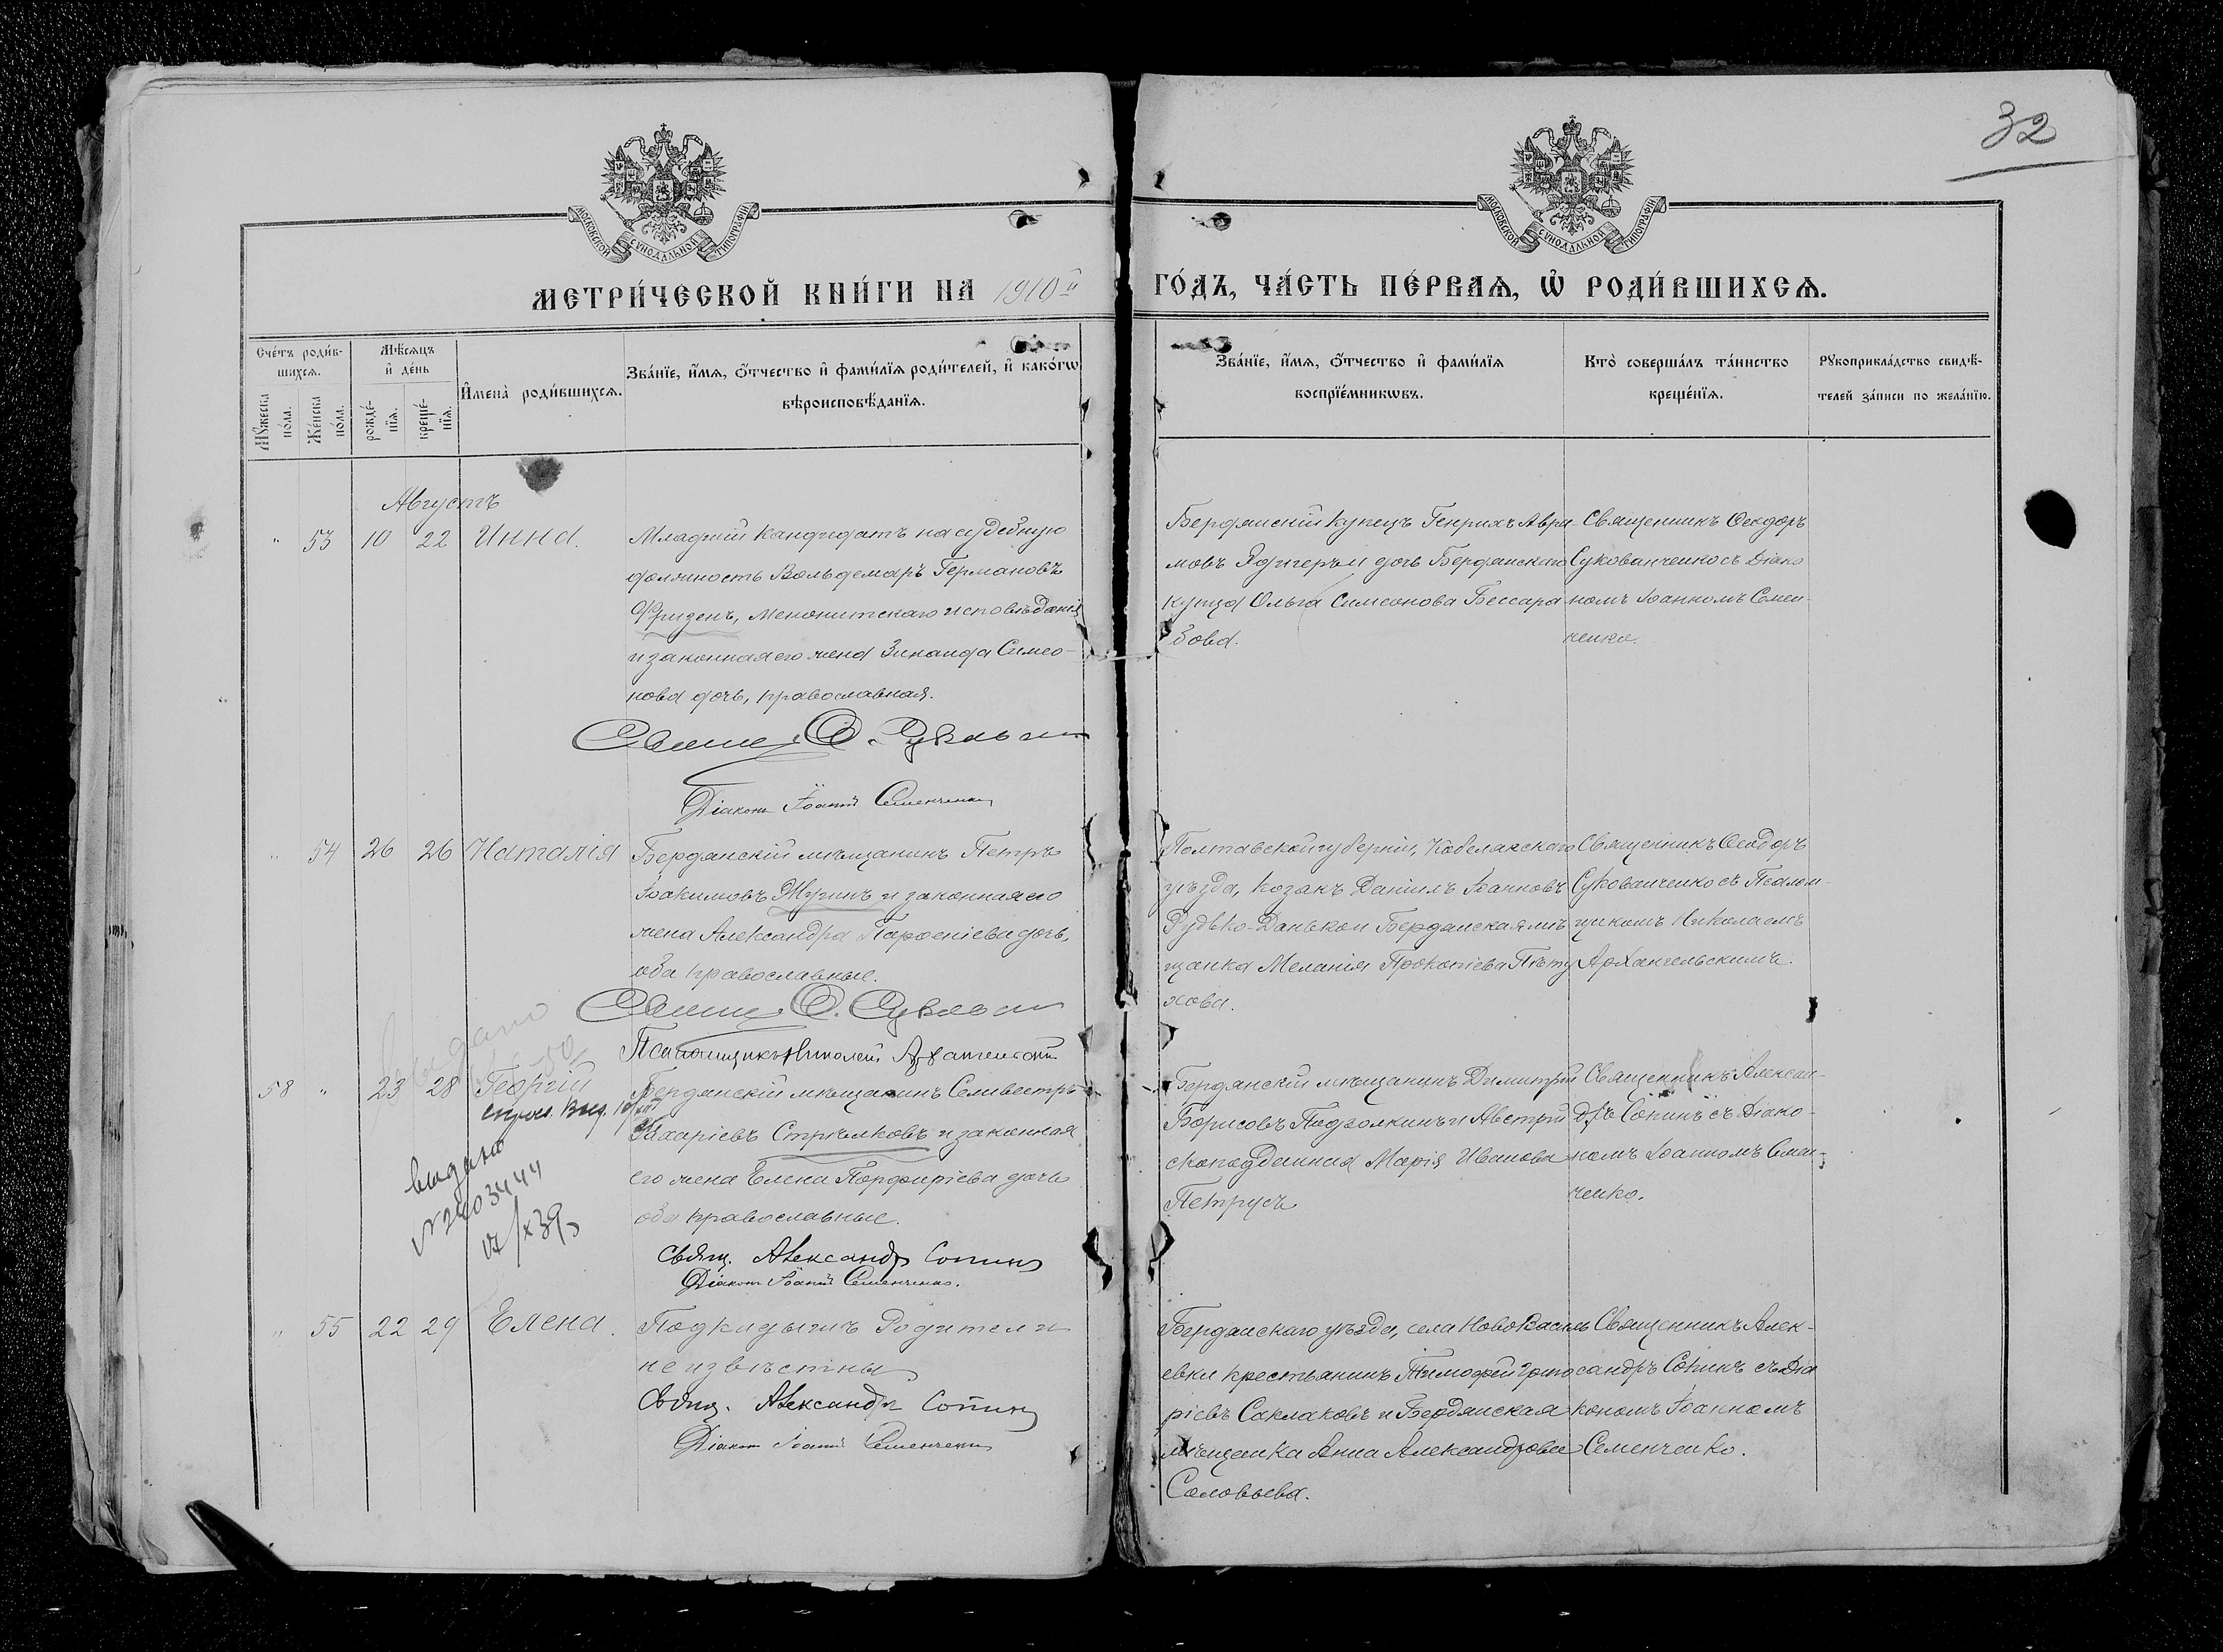 32
МОСКОВСКОЙ СѴНОДАЛЬНОЙ ТИПОГРАФІИ
МОСКОВСКОЙ СѴНОДАЛЬНОЙ ТИПОГРАФІИ
МЕТРИ́ЧЕСКОЙ КНИ́ГИ НА 1910й ГО́ДЪ, ЧА́СТЬ ПЕ́РВАѦ, Ѡ҆ РОДИ́ВШИХСѦ.
Сче́тъ роди́в-
шихсѧ.
Мꙋ́жеска по́ла.
Же́нска по́ла.
Мѣ́сѧцъ
и҆ де́нь
рожде́-
нїѧ.
креще́-
нїѧ.
И҆мена̀ роди́вшихсѧ.
Зва́нїе, и҆́мѧ, ѻ҆́тчество и҆ фами́лїѧ роди́телей, и҆ како́гѡ
вѣроисповѣ́данїѧ.
Зва́нїе, и҆́мѧ, ѻ҆́тчество и҆ фами́лїѧ
воспрїе́мникѡвъ.
Кто̀ соверша́лъ та́инство
креще́нїѧ.
Рꙋкоприкла́дство свидѣ́-
телей за́писи по жела́нїю.
Августъ
" 53 10 22 Инна.
Младшій кандидатъ на судебную
должность Вольдемаръ Германовъ
Фризенъ, менонитскаго исповѣданія
и законная его жена Зинаида Симео-
нова дочь, православная.
Діаконъ Іоаннъ Семенченко
Бердянскій купецъ Генрихъ Авра-
мовъ Эдигеръ и дочь Бердянскаго
купца Ольга Симеонова Бессара-
бова.
Священникъ Ѳеодоръ
Сукованченко съ Діако
номъ Іоанномъ Семен-
ченко.
" 54 26 26 Наталія
Бердянскій мѣщанинъ Петръ
Іоакимовъ Жугинъ и законная его
жена Александра Парѳеніева дочь,
оба православные.
Псаломщикъ Николай Архангельскій
Полтавской губерніи, Кобелякскаго
уѣзда, козакъ Даніилъ Іоанновъ
Рудько-Данько и Бердянская мѣ
щанка Меланія Прокопіева Пѣту
хова.
Священникъ Ѳеодоръ
Сукованченко съ Псалом-
щикомъ Николаемъ
Архангельскимъ.
выдано
58 " 23 28 Георгій
выдано
№ 2403444
17/x 39
Бердянскій мѣщанинъ Селивестръ
Захаріевъ Стрѣлковъ и законная
его жена Елена Порфиріева дочь
оба православные.
Свящ. Александръ Сопинъ
Діаконъ Іоаннъ Семенченко.
Бердянскій мѣщанинъ Димитрій
Борисовъ Подголкинъ и Австрій
скоподданная Марія Иванова
Петрусъ
Священникъ Алексан-
дръ Сопинъ съ Діако-
номъ Іоанномъ Семен-
ченко.
" 55 22 29 Елена.
Подкидышъ Родители
неизвѣстны
Свящ. Александръ Сопинъ
Діаконъ Іоаннъ Семенченко
Бердянскаго уѣзда, села НовоВасиль
евки крестьянинъ Тимофей Григо
ріевъ Саклаковъ и Бердянская
мѣщанка Анна Александрова
Соловьева.
Священникъ Алек-
сандръ Сопинъ съ Діа
кономъ Іоанномъ
Семенченко.